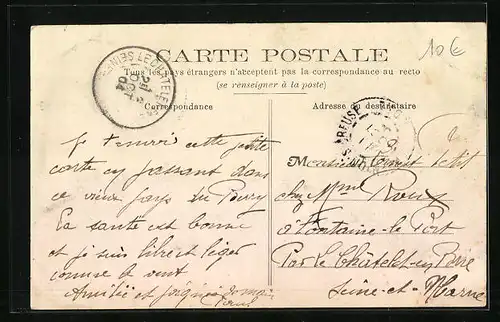 CARTE POSTALE
10€
Tous les pays étrangers n'acceptent pas la correspondance au recto
(se renseigner à la poste)
Correspondance
Adresse du destinataire
CREUSE
Je t'envoi cette petite
carte en passant dans
ce vieux pays du Berry
La santé est bonne
et je suis libre et léger
comme le vent
Amitié et
Monsieur Petit
chez Mme Roux
à Fontaine-le Port
Par le Châtelet-en Brie
Seine-et-Marne